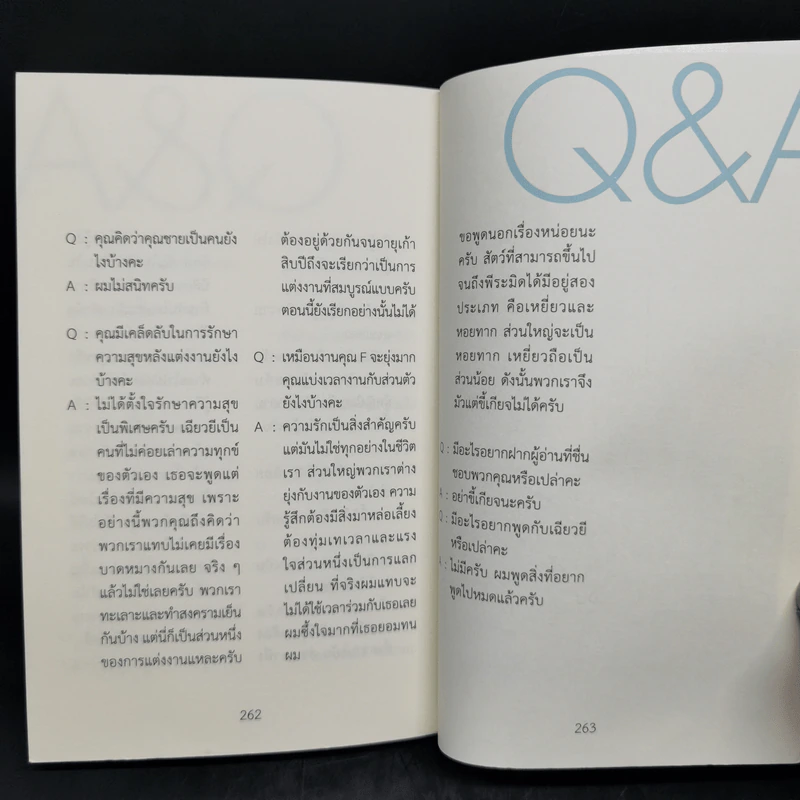 Q : คุณคิดว่าคุณชายเป็นคนยัง
ไงบ้างคะ
A : ผมไม่สนิทครับ
Q : คุณมีเคล็ดลับในการรักษา
ความสุขหลังแต่งงานยังไง
บ้างคะ
A : ไม่ได้ตั้งใจรักษาความสุข
เป็นพิเศษครับ เฉียวยีเป็น
คนที่ไม่ค่อยเล่าความทุกข์
ของตัวเอง เธอจะพูดแต่
เรื่องที่มีความสุข เพราะ
อย่างนี้พวกคุณถึงคิดว่า
พวกเราแทบไม่เคยมีเรื่อง
บาดหมางกันเลย จริง ๆ
แล้วไม่ใช่เลยครับ พวกเรา
ทะเลาะและทำสงครามเย็น
กันบ้าง แต่นี่ก็เป็นส่วนหนึ่ง
ของการแต่งงานแหละครับ
ต้องอยู่ด้วยกันจนอายุเก้า
สิบปีถึงจะเรียกว่าเป็นการ
แต่งงานที่สมบูรณ์แบบครับ
ตอนนี้ยังเรียกอย่างนั้นไม่ได้
Q : เหมือนงานคุณ F จะยุ่งมาก
คุณแบ่งเวลางานกับส่วนตัว
ยังไงบ้างคะ
A : ความรักเป็นสิ่งสำคัญครับ
แต่มันไม่ใช่ทุกอย่างในชีวิต
เรา ส่วนใหญ่พวกเราต่าง
ยุ่งกับงานของตัวเอง ความ
รู้สึกต้องมีสิ่งมาหล่อเลี้ยง
ต้องทุ่มเทเวลาและแรง
ใจส่วนหนึ่งเป็นการแลก
เปลี่ยน ที่จริงผมแทบจะ
ไม่ได้ใช้เวลาร่วมกับเธอเลย
ผมซึ้งใจมากที่เธอยอมทน
ผม
262
Q&A
ขอพูดนอกเรื่องหน่อยนะ
ครับ สัตว์ที่สามารถขึ้นไป
จนถึงพีระมิดได้มีอยู่สอง
ประเภท คือเหยี่ยวและ
หอยทาก ส่วนใหญ่จะเป็น
หอยทาก เหยี่ยวถือเป็น
ส่วนน้อย ดังนั้นพวกเราจึง
มัวแต่ขี้เกียจไม่ได้ครับ
Q : มีอะไรอยากฝากผู้อ่านที่ชื่น
ชอบพวกคุณหรือเปล่าคะ
A : อย่าขี้เกียจนะครับ
Q : มีอะไรอยากพูดกับเฉียวยี
หรือเปล่าคะ
A : ไม่มีครับ ผมพูดสิ่งที่อยาก
พูดไปหมดแล้วครับ
263